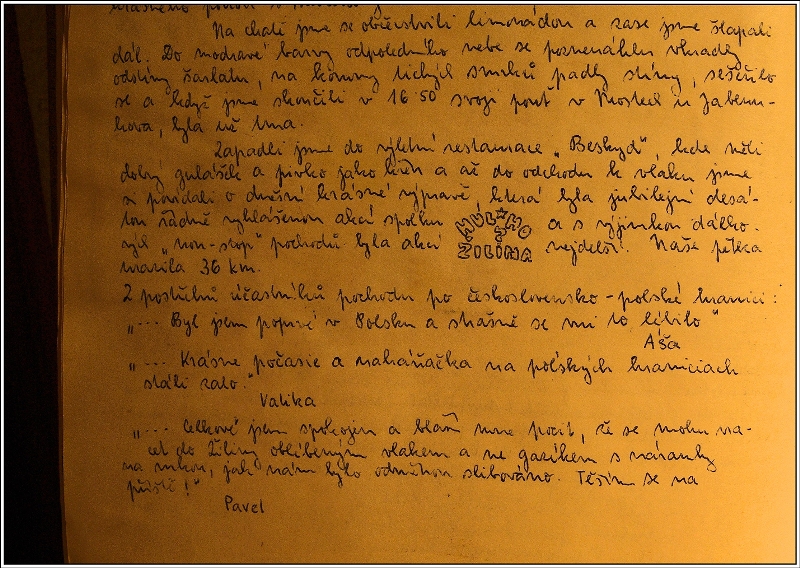 krásného
Na chatě jsme se občerstvili limonádou a zase jsme šlapali
dál. Do modravé barvy odpoledního nebe se poznenáhlu vkradly
odstíny šarlatu, na koruny tichých smrků padly stíny, sešeřilo
se a když jsme skončili v 16 50 svoji pouť v Mostech u Jablun-
kova, byla už tma.
Zapadli jsme do výletní restaurace „Beskyd", kde měli
dobrý gulášek a pivko jako křen a až do odchodu k vlaku jsme
si povídali o dnešní krásné výpravě, která byla jubilejní desá-
tou řádně vyhlášenou akcí spolku HULHO a s výjimkou dálko-
vých „non-stop" pochodů byla akcí ŽILINA nejdelší. Naše pětka
urazila 36 km.
Z postřehů účastníků pochodu po československo-polské hranici:
„... Byl jsem poprvé v Polsku a strašně se mi to líbilo"
Ása
„... Krásne počasie a naháňačka na poľských hraniciach
stáli zato."
Valika
„... Celkově jsem spokojen a blaží mne pocit, že se mohu vra-
cet do Žiliny oblíbeným vlakem a ne gazíkem s náramky
na rukou, jak nám bylo odněkud slibováno. Těším se na
příště!"
Pavel